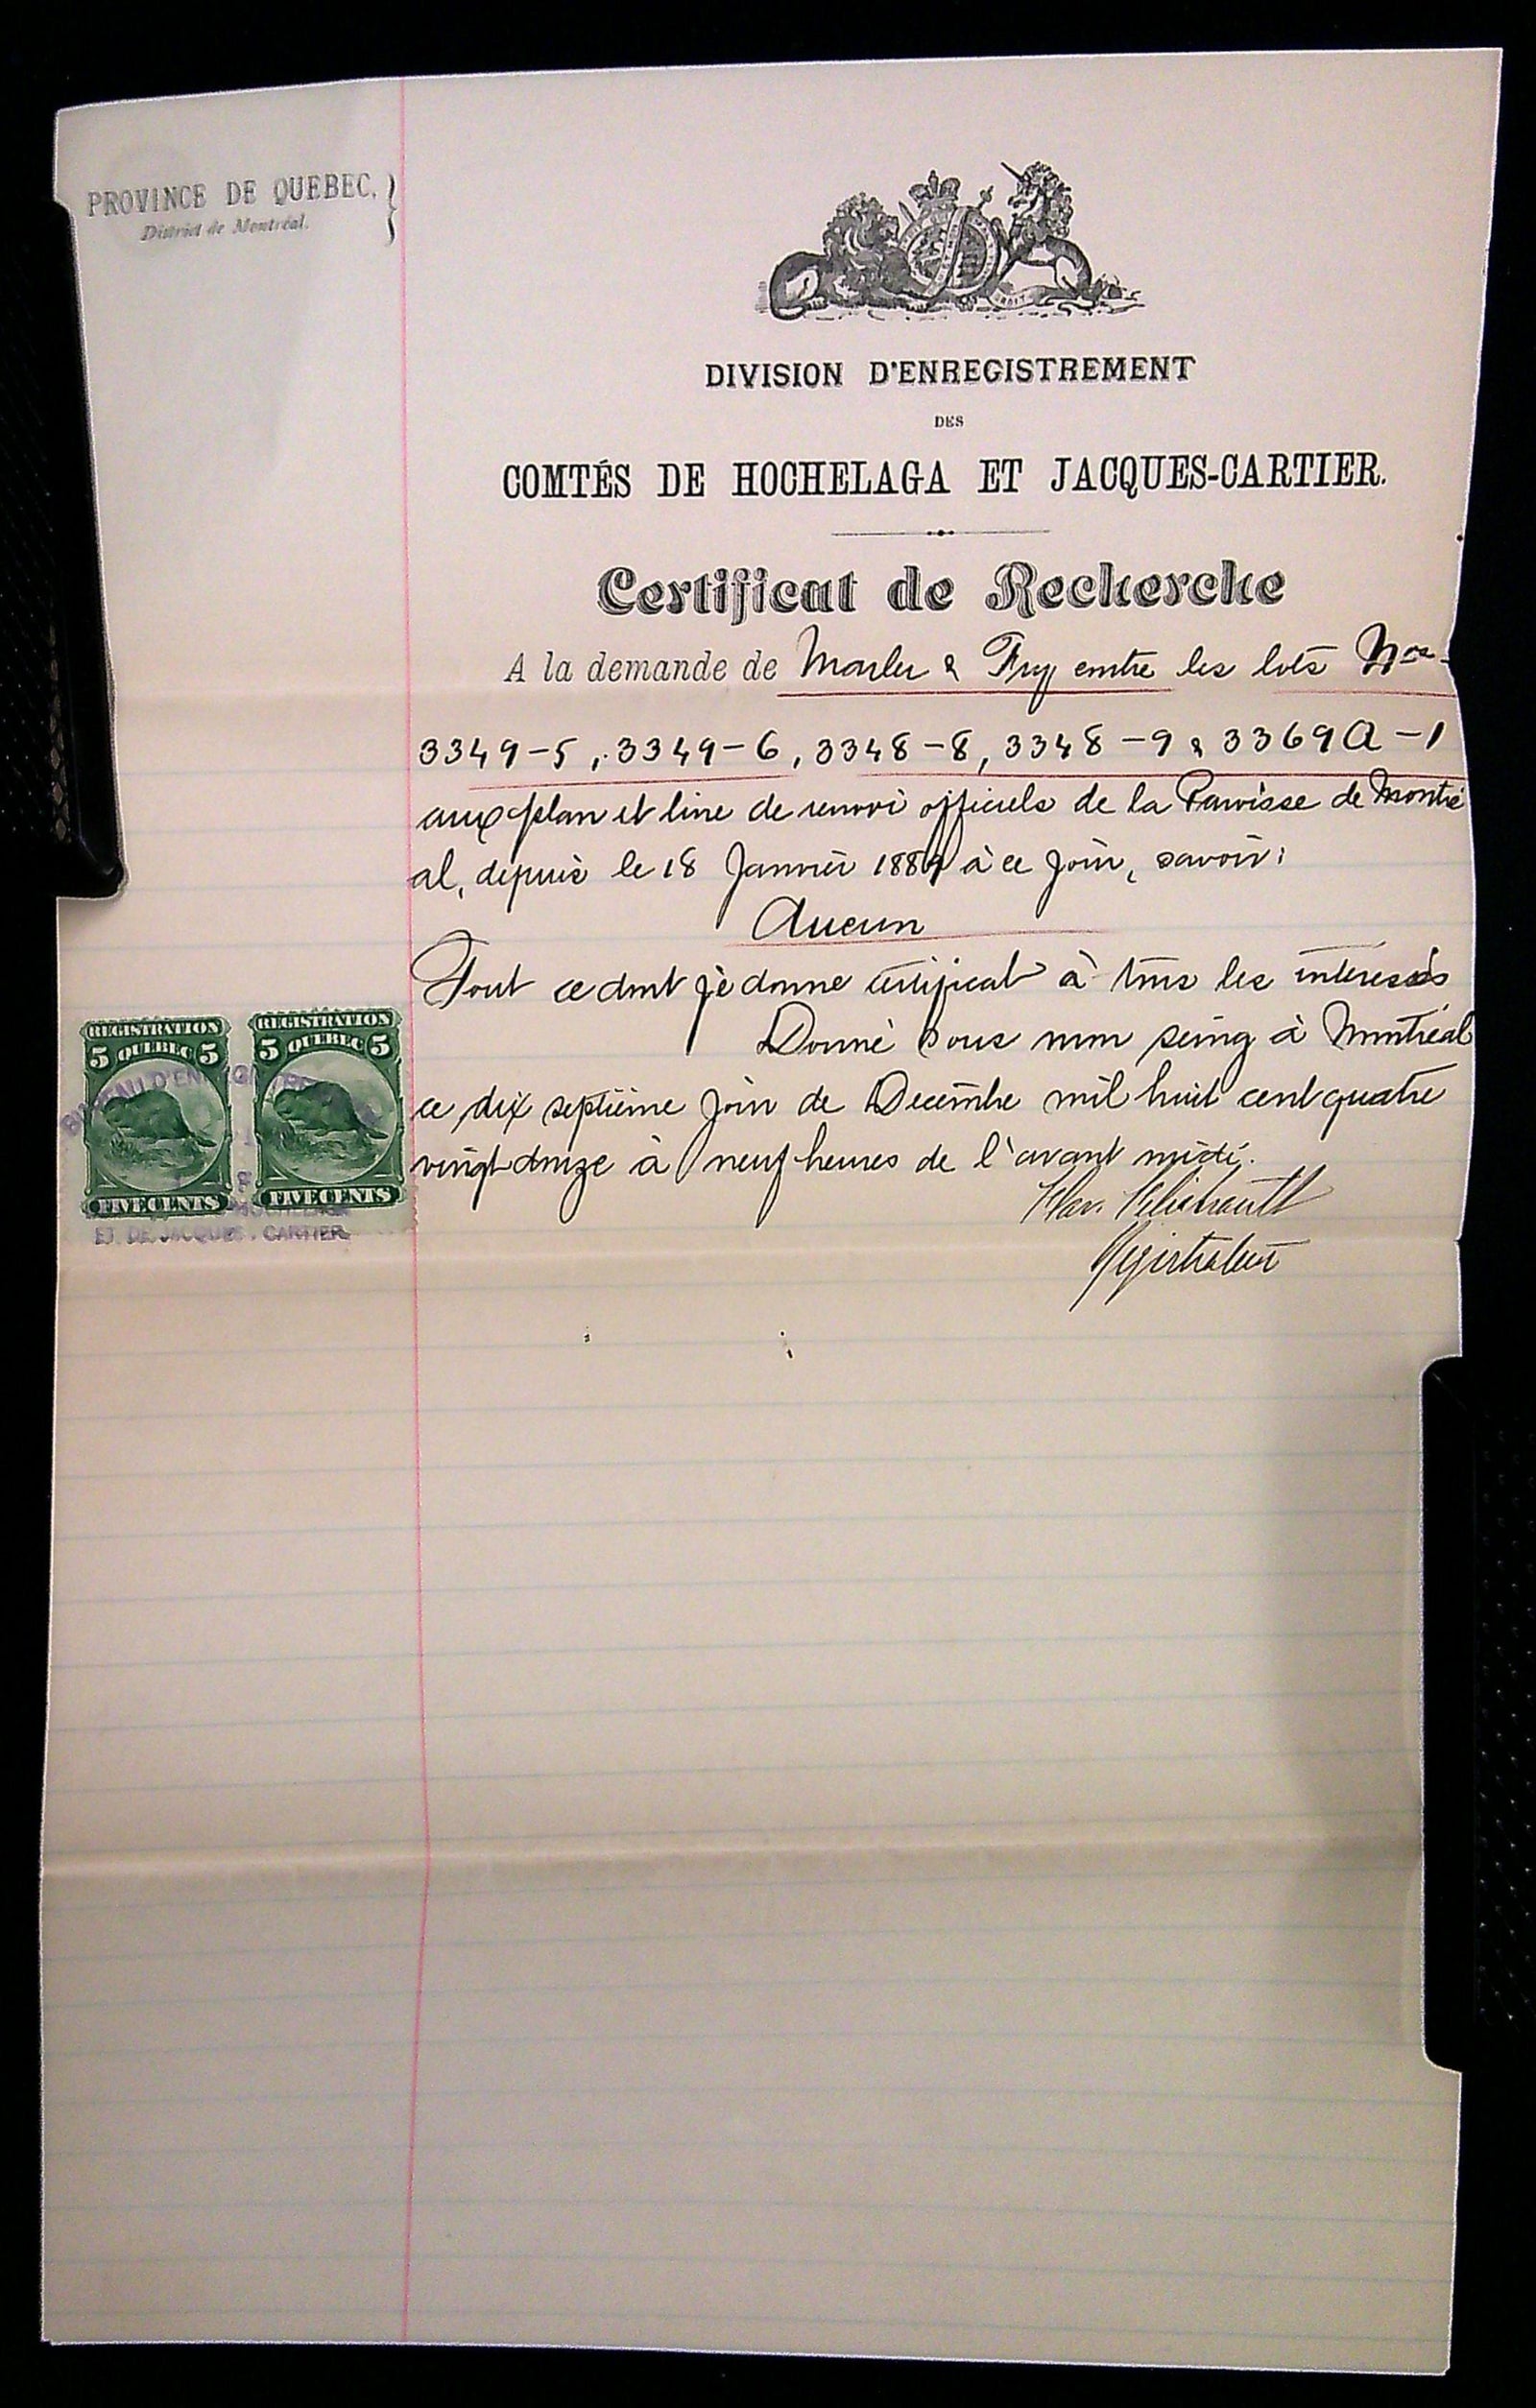 PROVINCE DE QUEBEC,
District de Montréal.
DIVISION D'ENREGISTREMENT
DES
COMTÉS DE HOCHELAGA ET JACQUES-CARTIER.
Certificat de Recherche
A la demande de Marler & Fry contre les lots Nos
3349-5, 3349-6, 3348-8, 3348-9 & 3369A-1
aux plan et livre de renvoi officiels de la Paroisse de Montré
al, depuis le 18 Janvier 1889 à ce jour, savoir:
Aucun
Tout ce dont je donne certificat à tous les intéressés
Donné sous mon seing à Montréal
ce dix septième jour de Décembre mil huit cent quatre
vingt douze à neuf heures de l'avant midi.
Registrateur
REGISTRATION
5 QUEBEC 5
FIVE CENTS
REGISTRATION
5 QUEBEC 5
FIVE CENTS
ET DE JACQUES-CARTIER